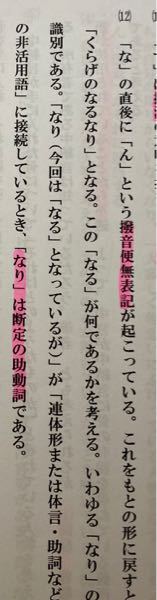 ⑿　「な」の直後に「ん」という撥音便無表記が起こっている。これをもとの形に戻すと
「くらげのなるなり」となる。この「なる」が何であるかを考える。いわゆる「なり」の
識別である。「なり（今回は「なる」となっているが）」が「連体形または体言・助詞など
の非活用語」に接続しているとき、「なり」は断定の助動詞である。